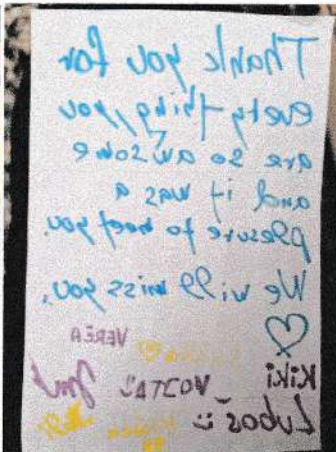 Thank you for
everything, you
are so awsome
and it was a
plesure to meet you.
We will miss you.
VERČA
Kiki
VOJTA
Luboš